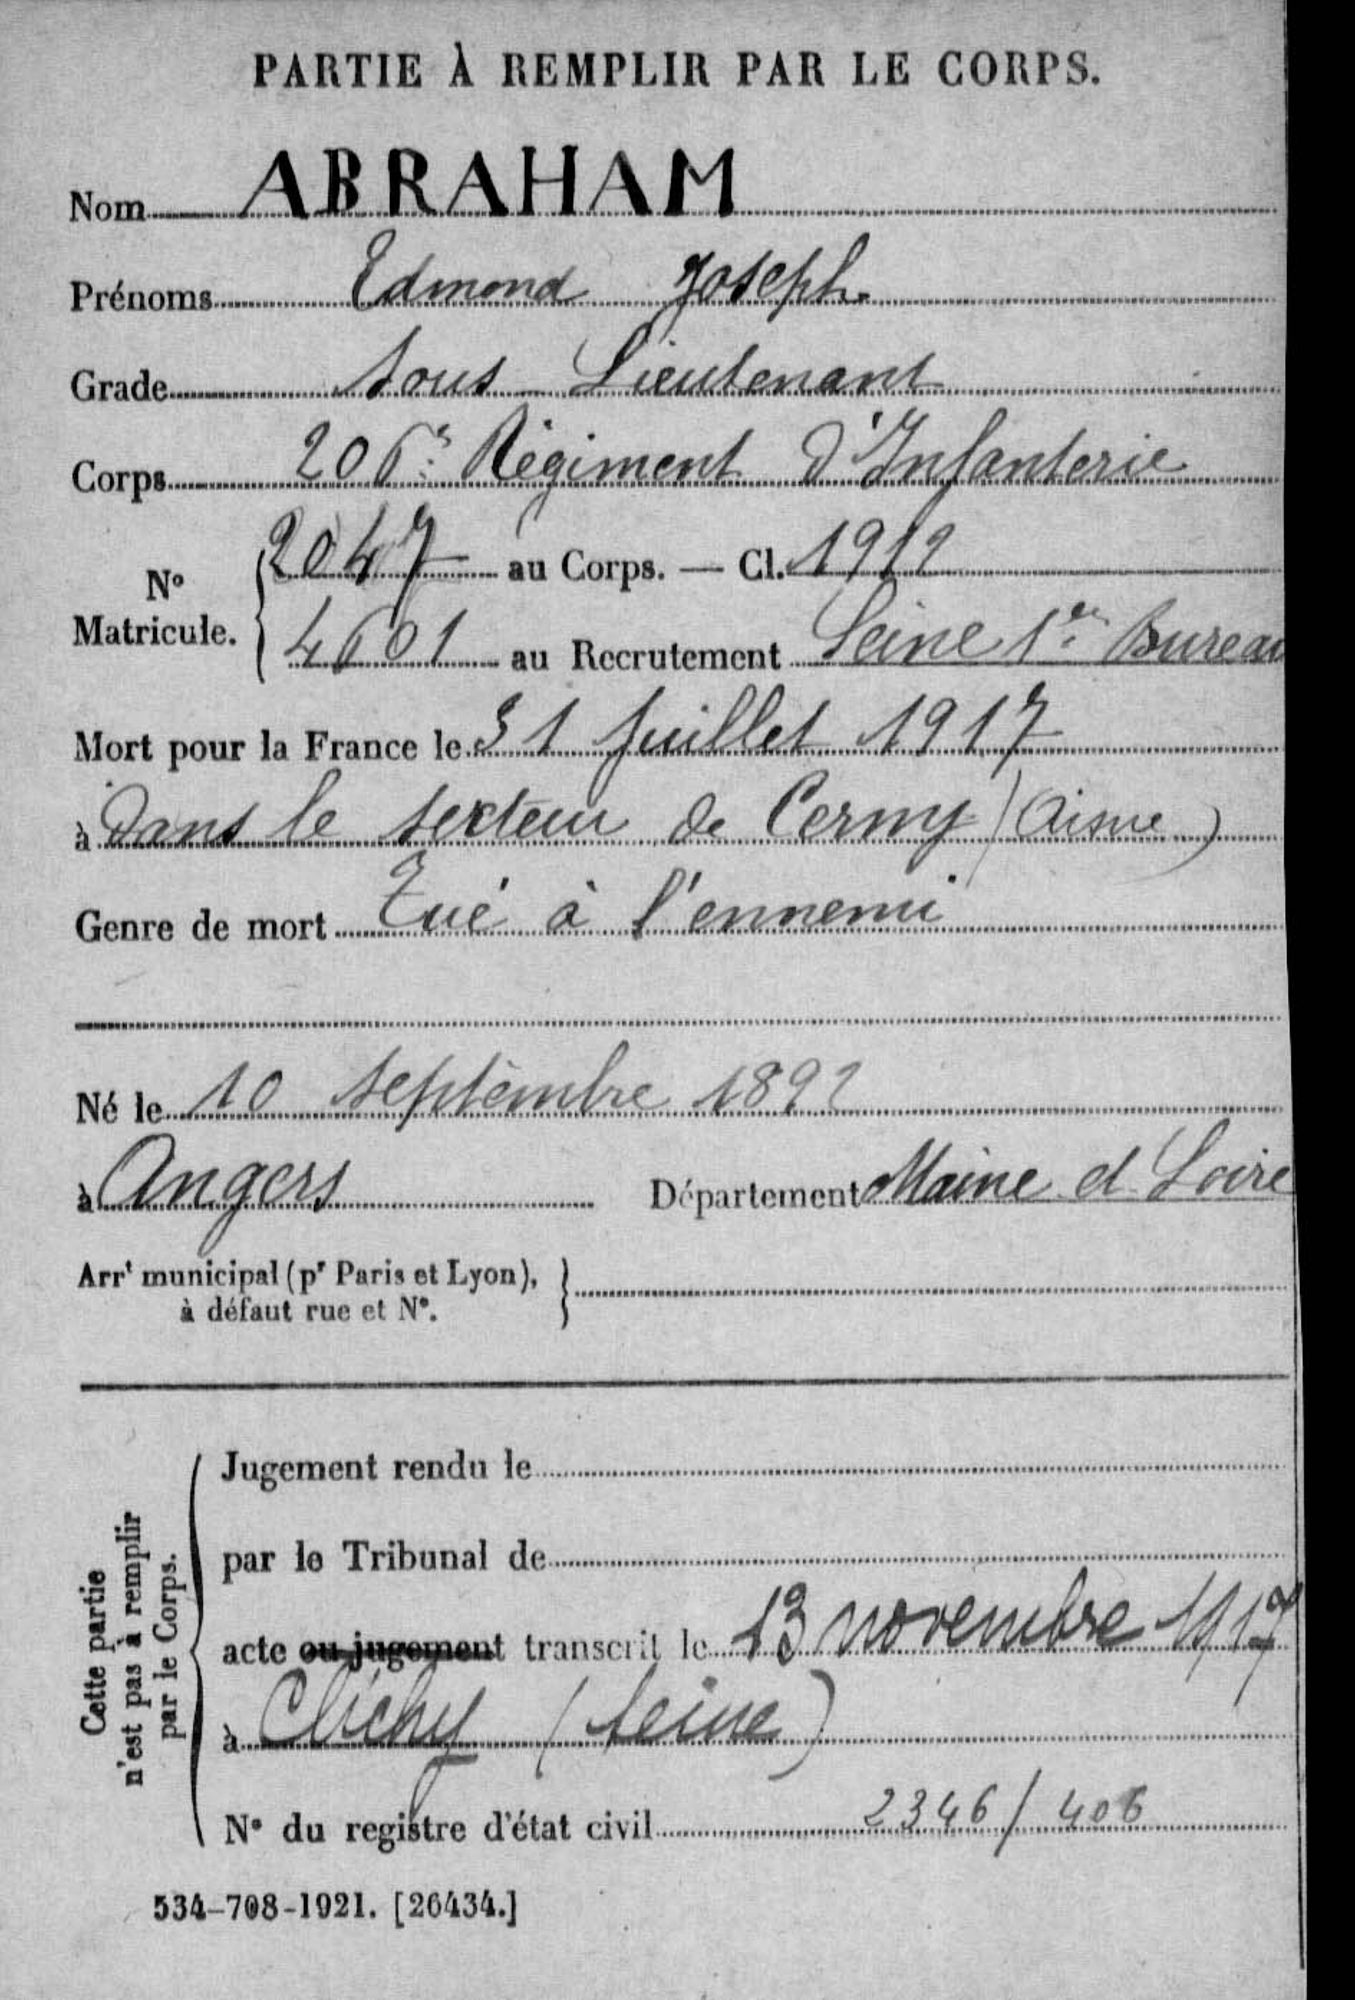 PARTIE À REMPLIR PAR LE CORPS.
Nom ABRAHAM
Prénoms Edmond Joseph
Grade Sous-Lieutenant
Corps 206e Régiment d'Infanterie
N° Matricule. { 2047 au Corps. — Cl. 1912
4601 au Recrutement Seine 1er Bureau
Mort pour la France le 31 Juillet 1917
à Dans le secteur de Cerny (Aisne)
Genre de mort Tué à l'ennemi
Né le 10 Septembre 1892
à Angers Département Maine et Loire
Arrt municipal (pr Paris et Lyon), }
à défaut rue et N°.
Cette partie
n'est pas à remplir
par le Corps.
Jugement rendu le
par le Tribunal de
acte ou jugement transcrit le 13 novembre 1917
à Clichy (Seine)
N° du registre d'état civil 2346/406
534-708-1921. [26434.]